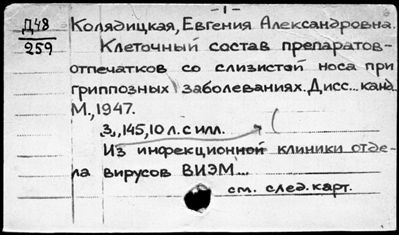 -1-
Д48
259
Колядицкая, Евгения Александровна.
Клеточный состав препаратов-
отпечатков со слизистой носа при
гриппозных заболеваниях. Дисс... канд.
М., 1947.
3, 145, 10 л. с илл.
Из инфекционной клиники отде-
ла вирусов ВИЭМ...
см. след. карт.